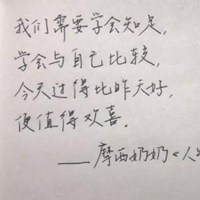 我们需要学会知足,
学会与自己比较,
今天过得比昨天好,
便值得欢喜.
——摩西奶奶《人